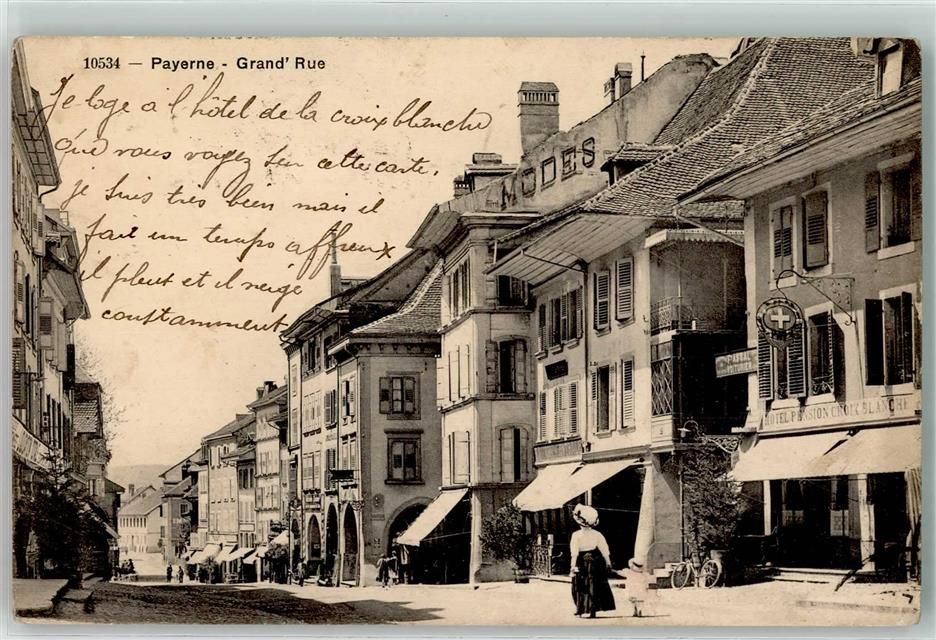 10534 — Payerne - Grand' Rue
Je loge à l'hôtel de la croix blanche
que vous voyez sur cette carte,
je suis très bien mais il
fait un temps affreux
il pleut et il neige
constamment
MODES
HOTEL PENSION CROIX BLANCHE